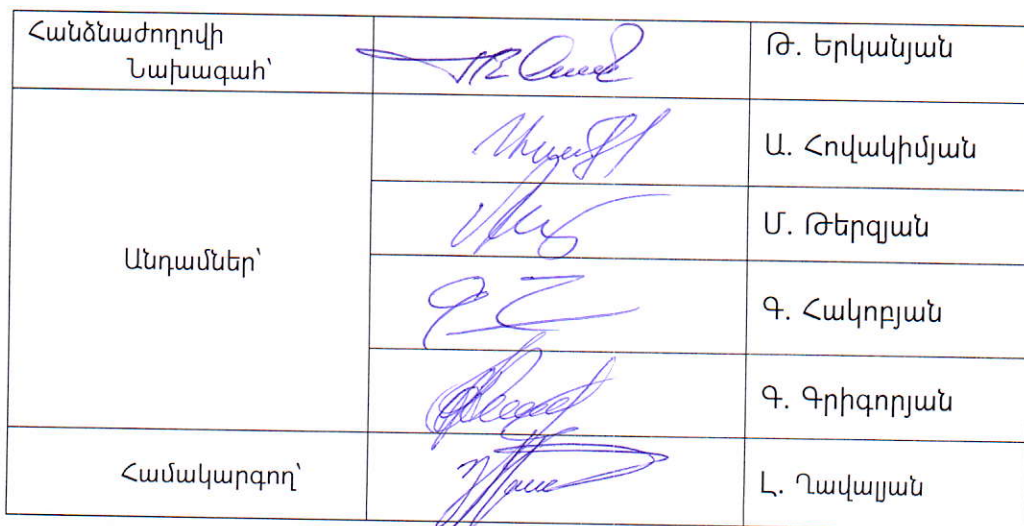 Հանձնաժողովի
Նախագահ՝
Թ. Երկանյան
Անդամներ՝
Ա. Հովակիմյան
Մ. Թերզյան
Գ. Հակոբյան
Գ. Գրիգորյան
Համակարգող՝
Լ. Ղավալյան